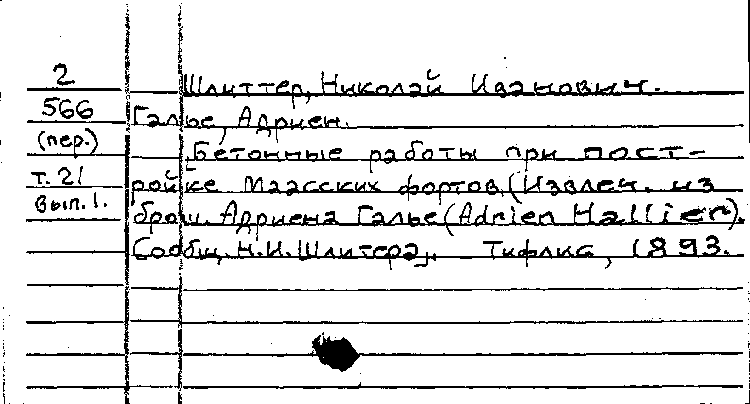 2
566
(пер.)
т. 21
вып. 1.
Шлиттер, Николай Иванович.
Галье, Адриен.
Бетонные работы при пост-
ройке Маасских фортов. (Извлеч. из
брош. Адриена Галье (Adrien Hallier).
Сообщ. Н.И. Шлитера). Тифлис, 1893.